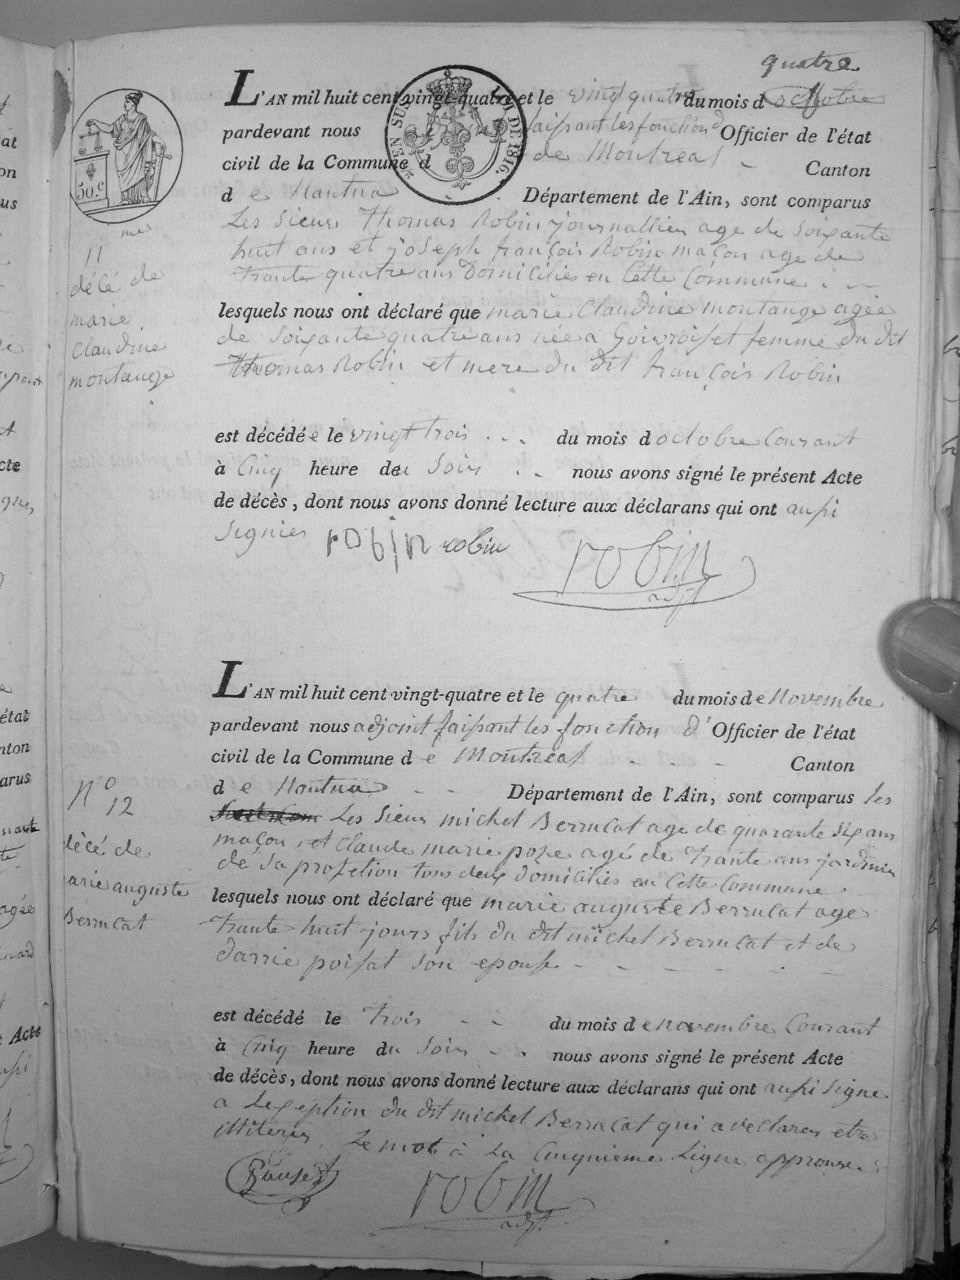 quatre
L'AN mil huit cent vingt-quatre et le vingt quatre du mois d octobre
pardevant nous faisant les fonction d' Officier de l'état
civil de la Commune d de Montreal Canton
d e Nantua Département de l'Ain, sont comparus
Les Sieur Thomas Robin journallier age de Soixante
huit ans et joseph françois Robin maçon age de
trante quatre ans Domiciliés en Cette Commune
lesquels nous ont déclaré que marie Claudine montange agée
de Soixante quatre ans née a et femme du dit
Thomas Robin et mere du dit françois Robin
est décédé e le vingt trois du mois d octobre Courant
à Cinq heure du Soir nous avons signé le présent Acte
de décès, dont nous avons donné lecture aux déclarans qui ont aussi
Signier robin robin robin
adjt
50.c
LOI DE 1816.
11 me
décé de
marie
Claudine
montange
L'AN mil huit cent vingt-quatre et le quatre du mois d e Novembre
pardevant nous adjoint faisant les fonction d' Officier de l'état
civil de la Commune d e Montreal Canton
d e Nantua Département de l'Ain, sont comparus les
Les Sieur michel Berrucat age de quarante six ans
maçon, et Claude marie poze agé de trante ans jardinier
de Sa profetion tous deux Domiciliés en Cette Commune
lesquels nous ont déclaré que marie auguste Berrucat age
trante huit jours fils du dit michel Berrucat et de
Son epouse
est décédé le trois du mois d e novembre Courant
à Cinq heure du Soir nous avons signé le présent Acte
de décès, dont nous avons donné lecture aux déclarans qui ont aussi Signe
a Lexeption du dit michel Berrucat qui a declarer etre
illiterés. Le mot à La Cinquieme Ligne approuve
robin
adjt
N° 12
décé de
marie auguste
Berrucat